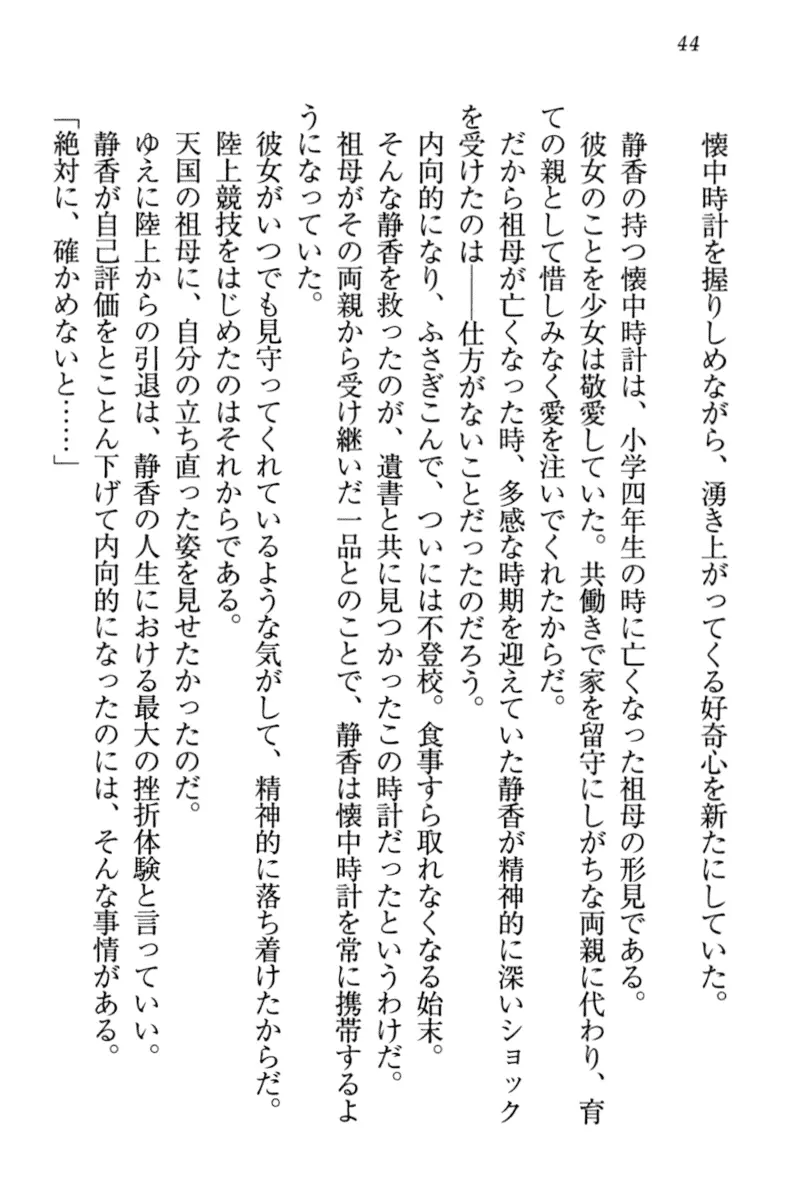 44
懐中時計を握りしめながら、湧き上がってくる好奇心を新たにしていた。
静香の持つ懐中時計は、小学四年生の時に亡くなった祖母の形見である。
彼女のことを少女は敬愛していた。共働きで家を留守にしがちな両親に代わり、育
ての親として惜しみなく愛を注いでくれたからだ。
だから祖母が亡くなった時、多感な時期を迎えていた静香が精神的に深いショック
を受けたのは――仕方がないことだったのだろう。
内向的になり、ふさぎこんで、ついには不登校。食事すら取れなくなる始末。
そんな静香を救ったのが、遺書と共に見つかったこの時計だったというわけだ。
祖母がその両親から受け継いだ一品とのことで、静香は懐中時計を常に携帯するよ
うになっていた。
彼女がいつでも見守ってくれているような気がして、精神的に落ち着けたからだ。
陸上競技をはじめたのはそれからである。
天国の祖母に、自分の立ち直った姿を見せたかったのだ。
ゆえに陸上からの引退は、静香の人生における最大の挫折体験と言っていい。
静香が自己評価をとことん下げて内向的になったのには、そんな事情がある。
「絶対に、確かめないと……」